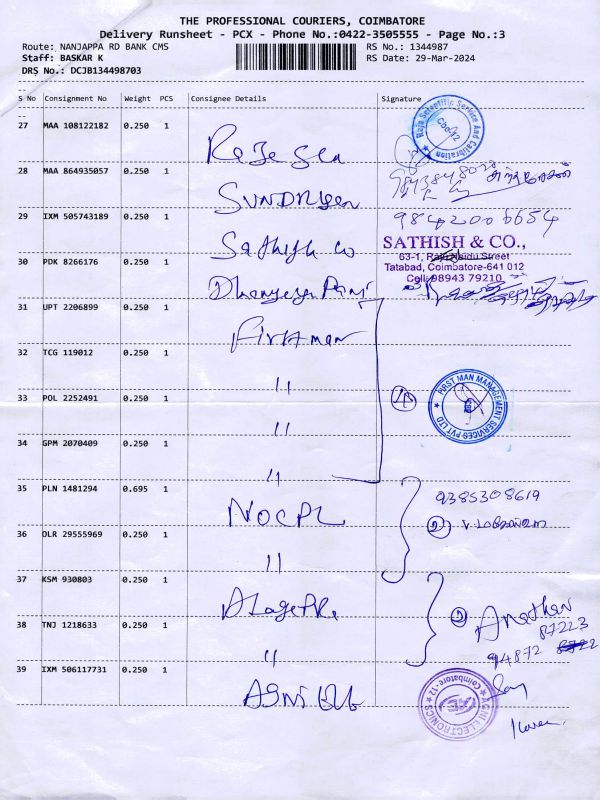 THE PROFESSIONAL COURIERS, COIMBATORE
Delivery Runsheet - PCX - Phone No.:0422-3505555 - Page No.:3
Route: NANJAPPA RD BANK CMS
RS No.: 1344987
Staff: BASKAR K
RS Date: 29-Mar-2024
DRS No.: DCJB134498703
S No Consignment No Weight PCS Consignee Details Signature
27 MAA 108122182 0.250 1
Raja Scientific Service And Calibration
CBE-12
28 MAA 864935057 0.250 1
29 IXM 505743189 0.250 1
9842006654
Sathish Co
SATHISH & CO.,
63-1, Raju Naidu Street
Tatabad, Coimbatore-641 012
Cell: 98943 79210
30 PDK 8266176 0.250 1
31 UPT 2206899 0.250 1
Firstman
32 TCG 119012 0.250 1
"
33 POL 2252491 0.250 1
"
4
FIRST MAN MANAGEMENT SERVICES PVT LTD
34 GPM 2070409 0.250 1
"
35 PLN 1481294 0.695 1
NOCPL
9385308619
2
36 DLR 29555969 0.250 1
"
37 KSM 930803 0.250 1
2
87223
38 TNJ 1218633 0.250 1
"
94872
39 IXM 506117731 0.250 1
AGNI ELECTRONICS
Coimbatore-12